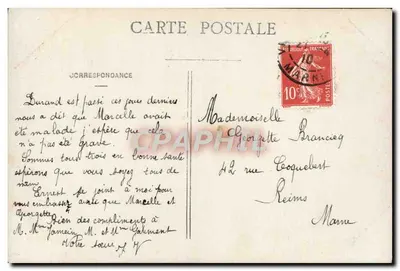 CARTE POSTALE
CORRESPONDANCE
Durand est passé ces jours derniers
nous a dit que Marcelle avait
été malade j'espère que cela
n'a pas été grave.
Sommes tous trois en bonne santé
espérons que vous soyez tous de
même
Ernest se joint à moi pour
vous embrasser ainsi que Marcelle et
Georgette
Bien des compliments à
M. Mme M. et Mme
Votre sœur
Mademoiselle
Georgette Brancieq
42 rue Coquebert
Reims
Marne
10
MARNE
10c
POSTES
CPARAMA